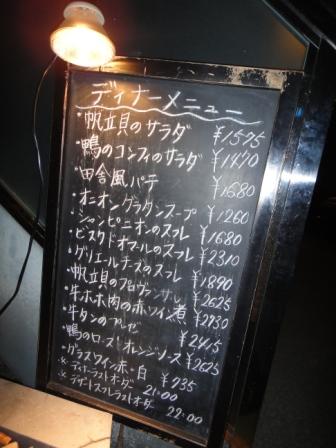 ディナーメニュー
・帆立貝のサラダ ¥1575
・鴨のコンフィのサラダ ¥1470
・田舎風パテ ¥1680
・オニオングラタンスープ ¥1260
・シャンピニオンのスフレ ¥1680
・ビスクドオマールのスフレ ¥2310
・グリエールチーズのスフレ ¥1890
・帆立貝のプロヴァンサル ¥2625
・牛ホホ肉の赤ワイン煮 ¥2730
・牛タンのブレゼ ¥2415
・鴨のロースト オレンジソース ¥2625
・グラスワイン赤・白 ¥735
※ディナーラストオーダー 21:00
※デザートスフレラストオーダー 22:00